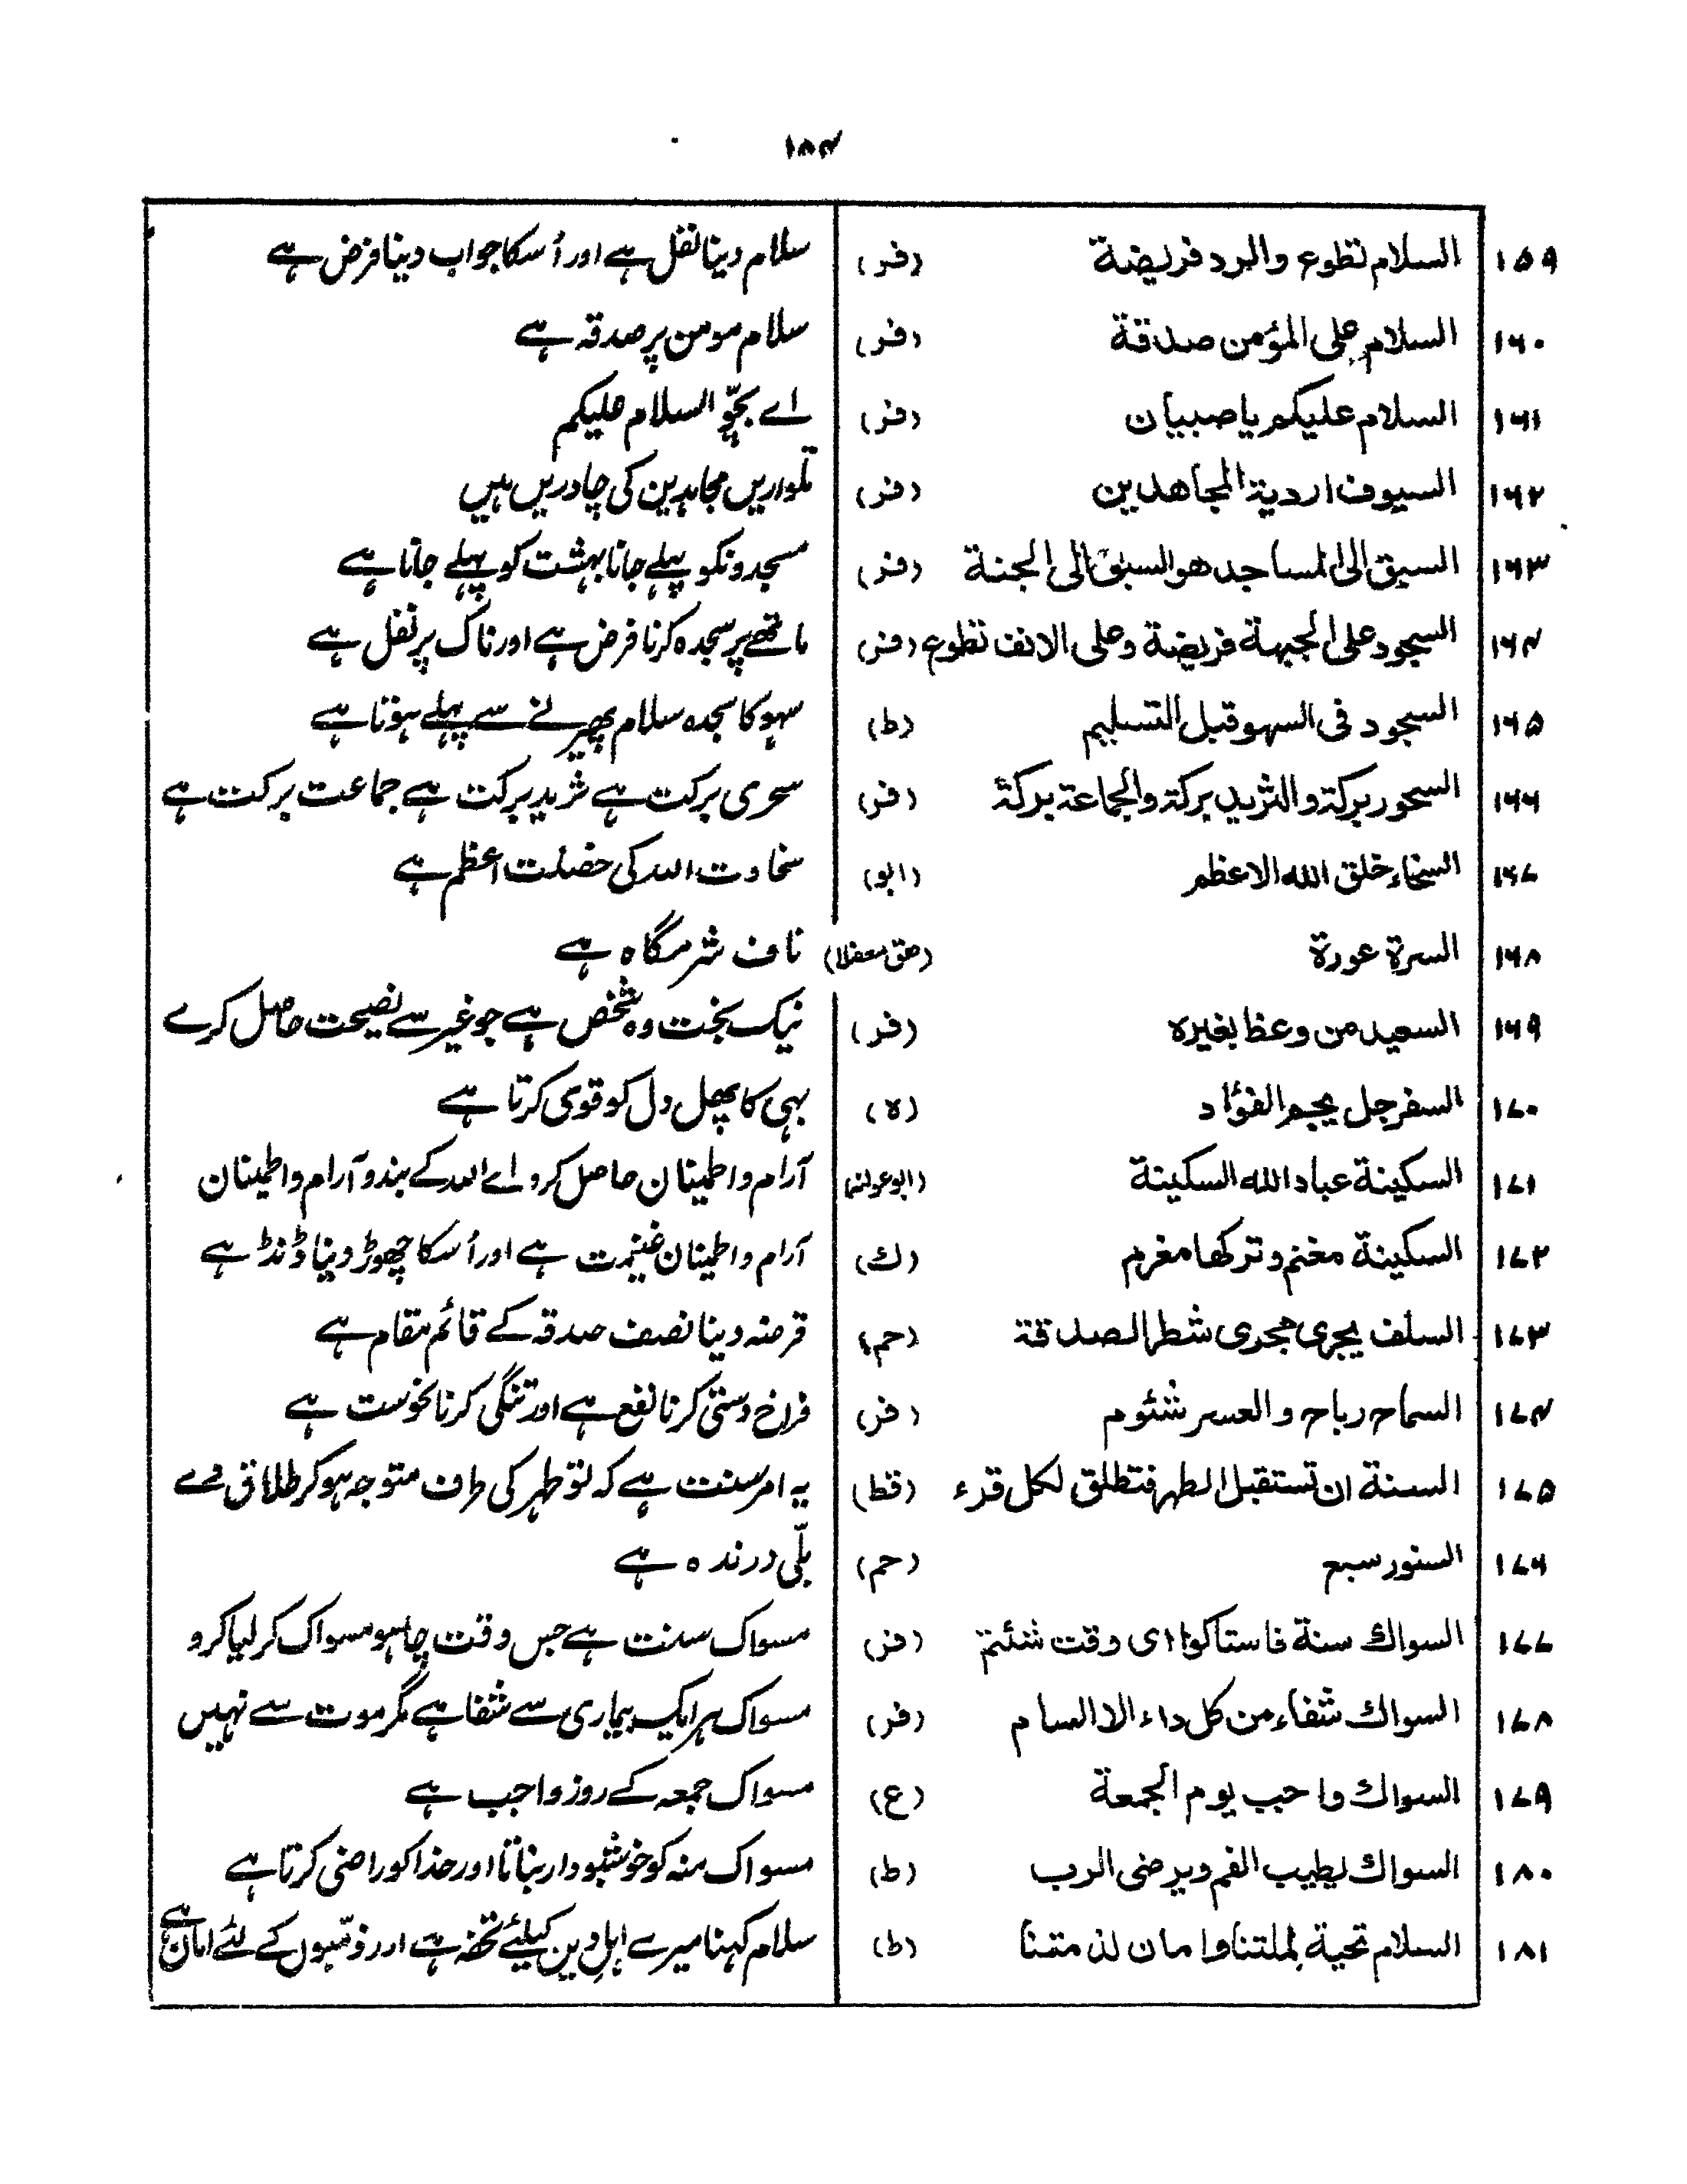 ۱۸۴
۱۵۹ السلام تطوع والرد فریضة (فر) سلام دینا نفل ہے اور اُسکا جواب دینا فرض ہے
۱۶۰ السلام علی المؤمن صدقة (فر) سلام مومن پر صدقہ ہے
۱۶۱ السلام علیکم یا صبیان (فر) اے بچّو السلام علیکم
۱۶۲ السیوف اردیة المجاهدین (فر) تلواریں مجاہدین کی چادریں ہیں
۱۶۳ السبق الی المساجد هو السبق الی الجنة (فر) مسجدونکو پہلے جانا بہشت کو پہلے جانا ہے
۱۶۴ السجود علی الجبهة فریضة وعلی الانف تطوع (فر) ماتھے پر سجدہ کرنا فرض ہے اور ناک پر نفل ہے
۱۶۵ السجود فی السهو قبل التسلیم (ط) سہو کا سجدہ سلام پھیرنے سے پہلے ہوتا ہے
۱۶۶ السحور برکة والثرید برکة والجماعة برکة (فر) سحری برکت ہے ثرید برکت ہے جماعت برکت ہے
۱۶۷ السخاء خلق الله الاعظم (ابو) سخاوت اللہ کی خصلت اعظم ہے
۱۶۸ السرة عورة (حق معضلا) ناف شرمگاہ ہے
۱۶۹ السعید من وعظ بغیره (فر) نیک بخت وہ شخص ہے جو غیر سے نصیحت حاصل کرے
۱۷۰ السفرجل یجم الفؤاد (ہ) بہی کا پھل دل کو قوی کرتا ہے
۱۷۱ السکینة عباد الله السکینة آرام و اطمینان حاصل کرو اے اللہ کے بندو آرام و اطمینان
۱۷۲ السکینة مغنم وترکها مغرم (ك) آرام و اطمینان غنیمت ہے اور اُسکا چھوڑ دینا ڈنڈ ہے
۱۷۳ السلف یجری مجری شطر الصدقة (حم) قرضہ دینا نصف صدقہ کے قائم مقام ہے
۱۷۴ السماح رباح والعسر شئوم (فر) فراخ دستی کرنا نفع ہے اور تنگی کرنا نحوست ہے
۱۷۵ السنة ان تستقبل الطهر فتطلق لکل قرء (قط) یہ امر سنت ہے کہ تو طہر کی طرف متوجہ ہو کر طلاق دے
۱۷۶ السنور سبع (حم) بلّی درندہ ہے
۱۷۷ السواك سنة فاستاکوا ای وقت شئتم (فر) مسواک سنت ہے جس وقت چاہو مسواک کر لیا کرو
۱۷۸ السواك شفاء من کل داء الا السام (فر) مسواک ہر ایک بیماری سے شفا ہے مگر موت سے نہیں
۱۷۹ السواك واجب یوم الجمعة (ع) مسواک جمعہ کے روز واجب ہے
۱۸۰ السواك یطیب الفم ویرضی الرب (ط) مسواک منہ کو خوشبودار بناتا اور خدا کو راضی کرتا ہے
۱۸۱ السلام تحیة لملتنا وامان لذمتنا (ط) سلام کہنا میرے اہل دین کیلئے تحفہ ہے اور ذمّیوں کے لئے امان ہے